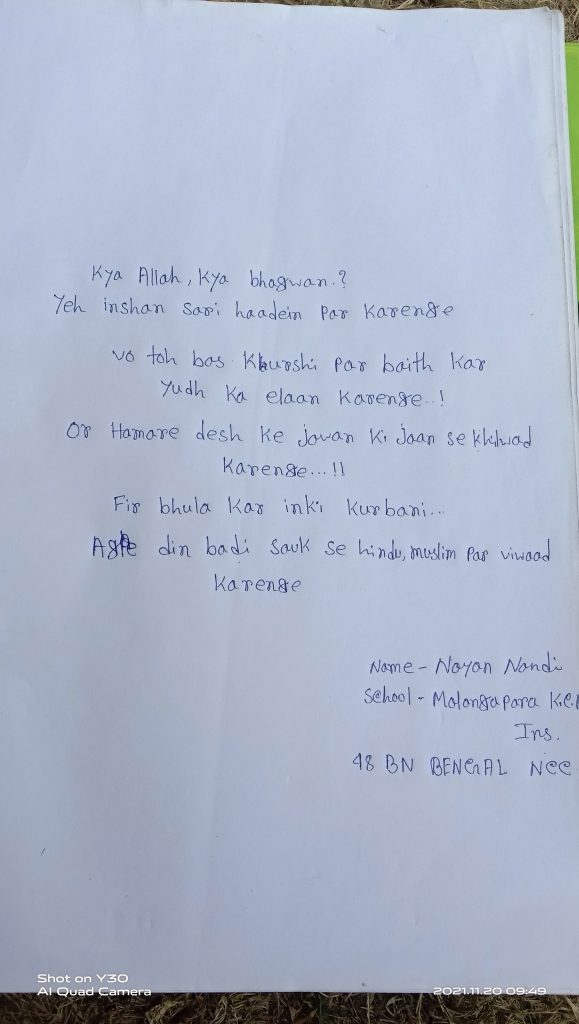 Kya Allah, Kya bhagwan.?
Yeh inshan sari haadein par Karenge
vo toh bas Khurshi par baith Kar
Yudh Ka elaan Karenge..!
Or Hamare desh ke javan Ki Jaan se khilwad
Karenge...!!
Fir bhula Kar inki Kurbani...
Agle din badi sauk se hindu, muslim par viwaad
Karenge
Name - Nayan Nandi
School - Molangapara K.C.
Ins.
48 BN BENGAL NCC
Shot on Y30
AI Quad Camera
2021.11.20 09:49